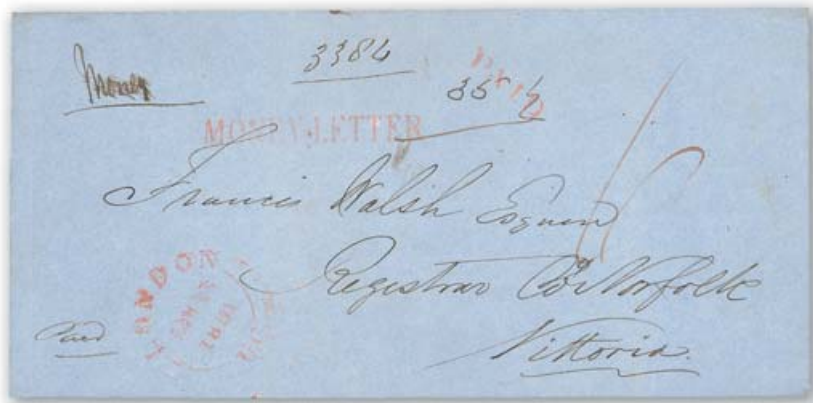 Money
3384
PAID
35 ½
MONEY-LETTER
Francis Walsh Esquire
Registrar Co Norfolk
Vittoria.
LONDON
Paid